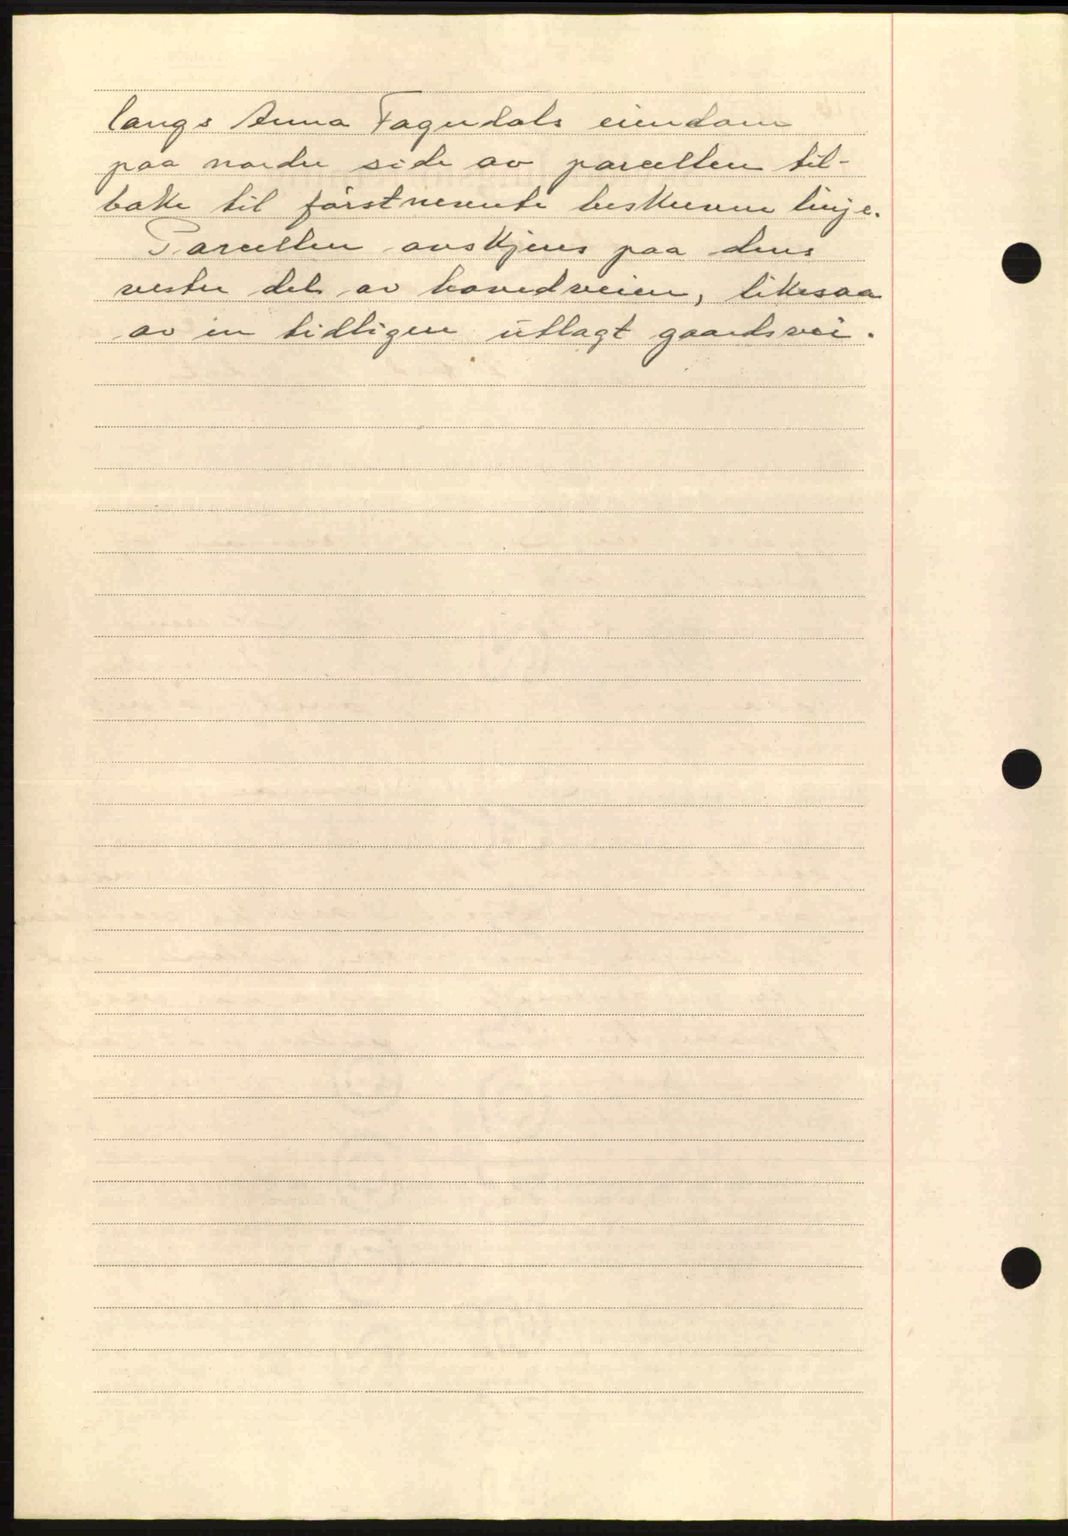 langs Anna Fagerdals eiendom
paa nordre side av parcellen til-
bake til förstnevnte beskrevne linje.
Parcellen avskjæres paa dens
vestre del av hovedveien, likesaa
av en tidligere utlagt gaardsvei.